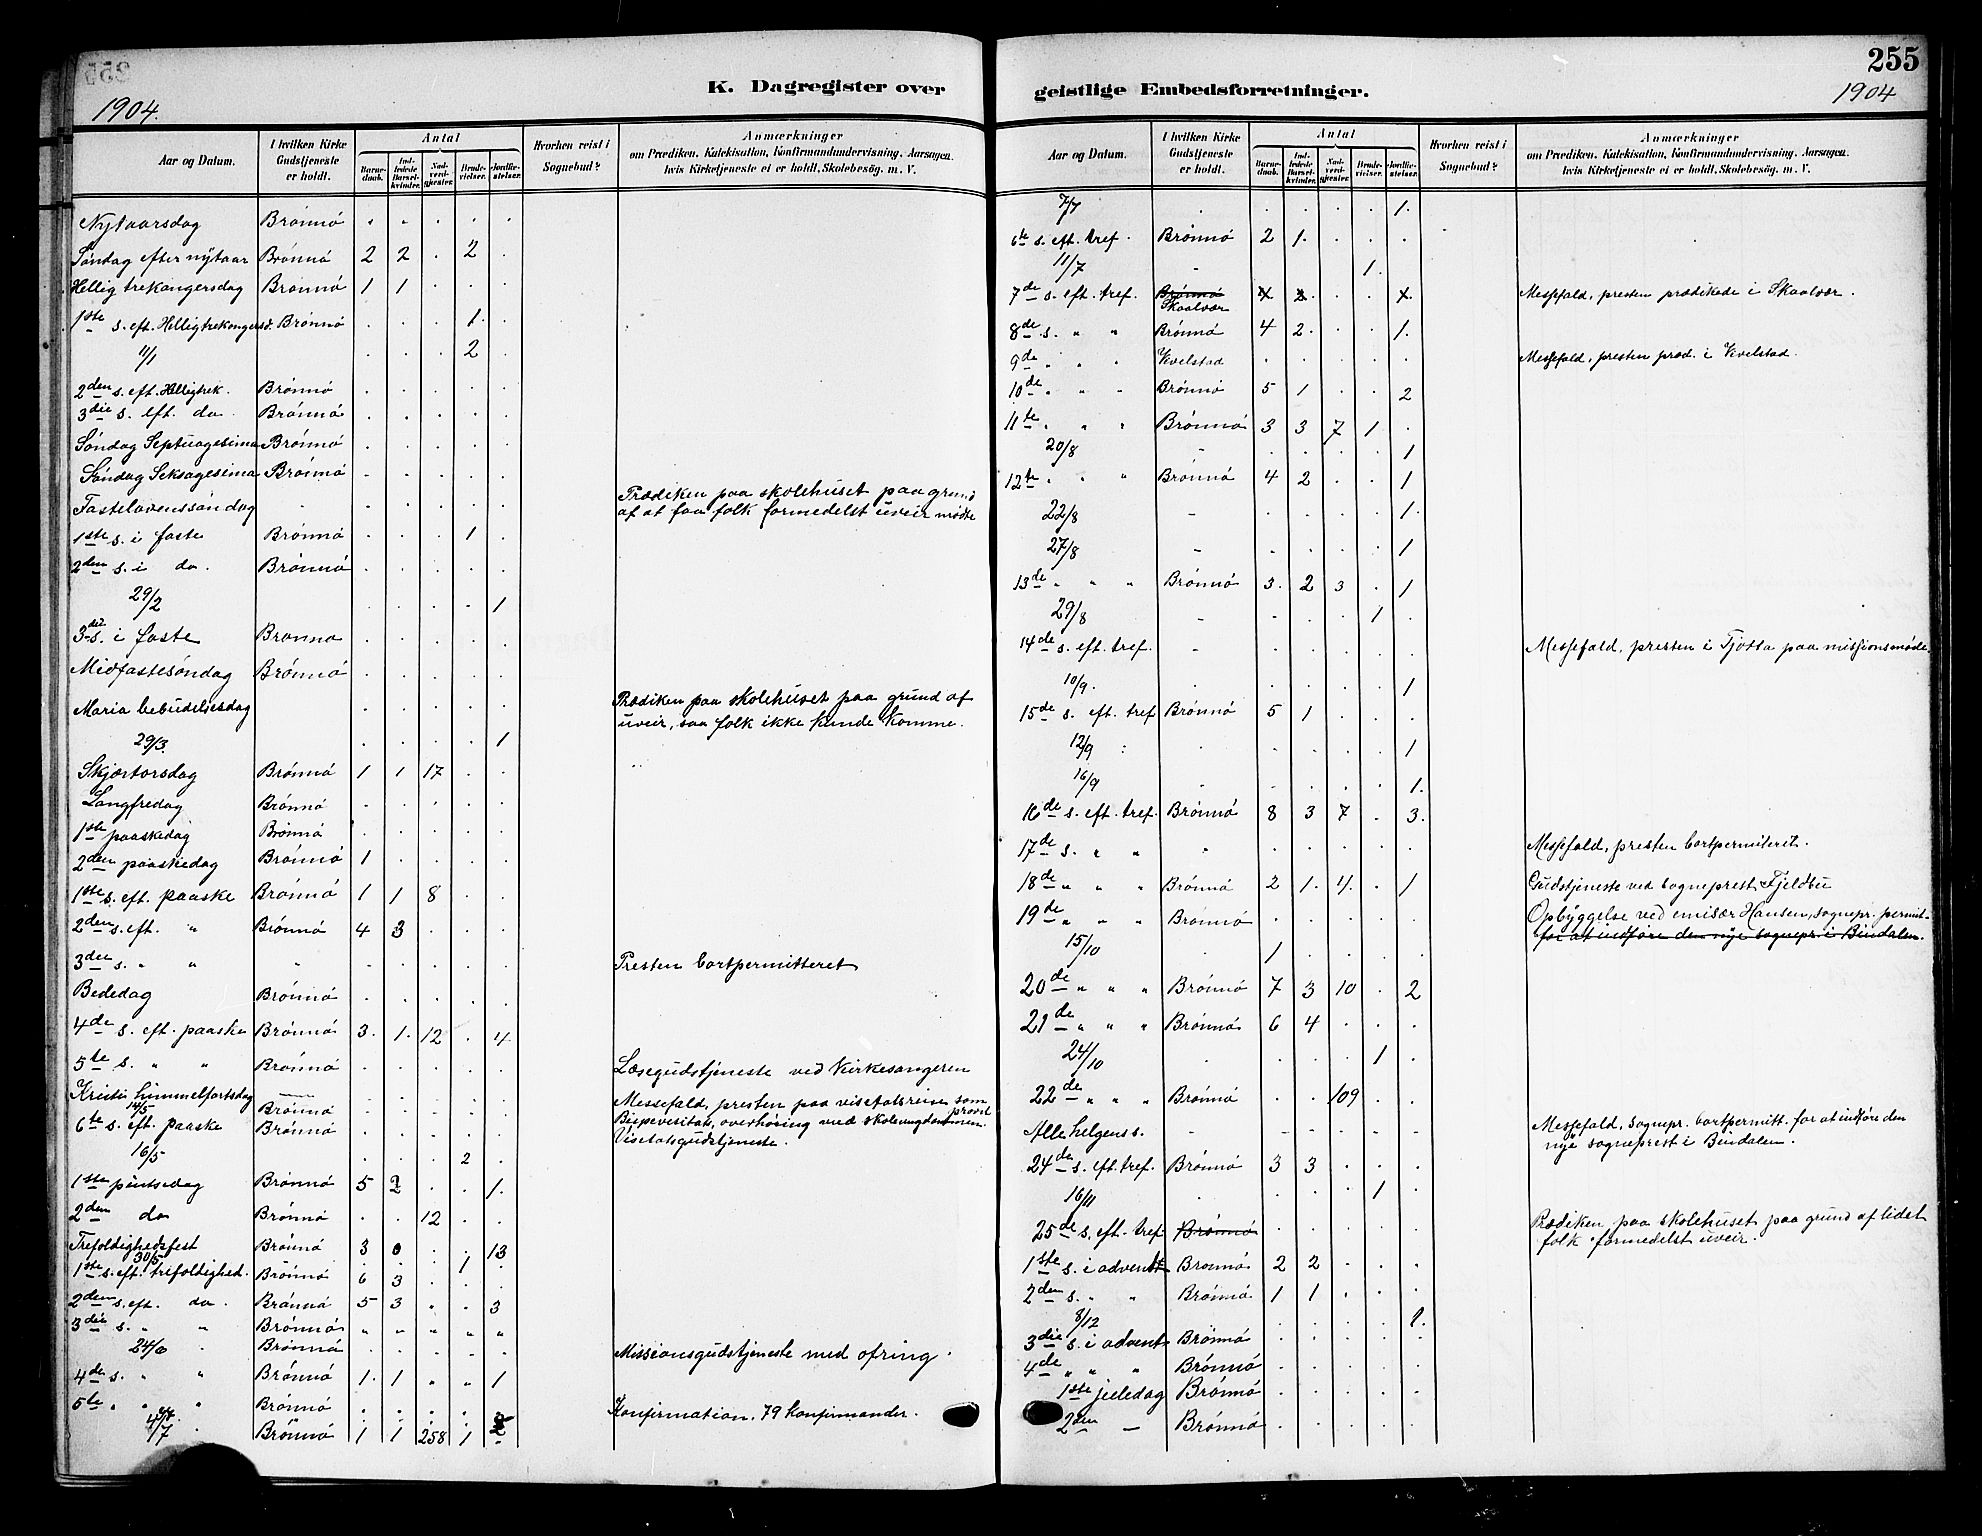 255
K. Dagregister over geistlige Embedsforretninger.
1904.
1904
Aar og Datum. I hvilken Kirke Gudstjeneste er holdt. Antal Barnedaab. Indledede Barselkvinder. Nadverdgjester. Brudevielser. Jordfæstelser. Hvorhen reist i Sognebud? Anmærkninger om Prædiken, Katekisation, Konfirmandundervisning, Aarsagen, hvis Kirketjeneste ei er holdt, Skolebesøg, m. V.
Nytaarsdag Brønnø . . . . .
Søndag efter nytaar Brønnø 2 2 . 2 .
Hellig trekongersdag Brønnø 1 1 . . .
1ste s. eft. Helligtrekongersd. Brønnø . . . 1. .
11/1 . . . 2 .
2den s. eft. Helligtrek. Brønnø . . . . .
3die s. eft. do. Brønnø . . . . .
Søndag Septuagesima Brønnø . . . . .
Søndag Seksagesima Brønnø . . . . .
Fastelavenssøndag . . . . . Prædiken paa skolehuset paa grund
af at faa folk formedelst uveir mødte
1ste s. i faste Brønnø . . . 1 .
2den s. i do. Brønnø . . . . .
29/2 . . . . 1
3die s. i faste Brønnø . . . . .
Midfastesøndag Brønnø . . . . .
Maria bebudelsesdag . . . . . Prædiken paa skolehuset paa grund af
uveir, saa folk ikke kunde komme.
29/3. . . . . 1
Skjærtorsdag Brønnø 1 1 17 . .
Langfredag Brønnø . . . . .
1ste paaskedag Brønnø . . . . .
2den paaskedag Brønnø 1 . . . .
1ste s. eft. paaske Brønnø 1 1 8 . .
2den s. eft. " Brønnø 4 3 . . .
3die s. " " " . . . . . Presten bortpermitteret
Bededag Brønnø . . . . .
4de s. eft. paaske Brønnø 3. 1. 12 . 4.
5te s. " " Brønnø . . . . . Læsegudstjeneste ved Kirkesangeren
Kristi himmelfartsdag — . . . . . Messefald, presten paa visitatsreise som provst
14/5 Brønnø . . . . . Bispevisitats, overhøring med skoleungdommen.
6te s. eft. paaske Brønnø . . . . . Visitatsgudstjeneste.
16/5 . . . 2 .
1ste pintsedag Brønnø 5 2 . . 1.
2den do Brønnø . . 12 . .
Trefoldighedsfest Brønnø 3 0 . . 13
30/5 1
1ste s. eft. trefoldighed. Brønnø 6 3 . . .
2den s. eft. do. Brønnø 5 3 " . 3
3die s. " " Brønnø " " " " "
24/6 . Brønnø . . . . . Missionsgudstjeneste med ofring.
4de s. " " Brønnø 1. 1 " " 1
5te " " " Brønnø . . . . . Konfirmation, 79 konfirmander.
4/7 . Brønnø 1 1 258 1
Aar og Datum. I hvilken Kirke Gudstjeneste er holdt. Antal Barnedaab. Indledede Barselkvinder. Nadverdgjester. Brudevielser. Jordfæstelser. Hvorhen reist i Sognebud? Anmærkninger om Prædiken, Katekisation, Konfirmandundervisning, Aarsagen, hvis Kirketjeneste ei er holdt, Skolebesøg, m. V.
7/7 . . . . . 1.
6te s. eft. tref. Brønnø 2 1. . . .
11/7 - . . . 1. .
7de s. eft. tref. Brønnø Skaalvær . . Messefald, presten prædikede i Skaalvær.
8de s. " " Brønnø 4 2. . . 1.
9de " " " Kvelstad . . . . . Messefald, presten præd. i Kvelstad.
10de " " " Brønnø 5 1 . . 2
11te " " " Brønnø 3 3 7 1 .
20/8 - . . . . 1
12te " " " Brønnø 4 2 . . 1
22/8 - . . . . 1.
27/8 - . . . . 1
13de " " " Brønnø 3. 2 3 . 1
29/8 - . . . 1 .
14de s. eft. tref. - . . . . . Messefald, presten i Tjøtta paa missionsmøde.
10/9. . . . . 1
15de s. eft. tref Brønnø 5 1 . . .
12/9 . . . . 1
16/9 . . . . 1.
16de s. eft. tref. Brønnø 8 3 7 . 3.
17de s. " " " . . . . . Messefald, presten bortpermiteret.
18de " " " Brønnø 2 1. 4. . 1 Gudstjeneste ved sogneprest Fjeldbu
19de " " " Brønnø . . . . . Opbyggelse ved emisær Hansen, sognepr. permit-
for at indføre den nye sognepr. i Bindalen.
15/10 . 1 . . . .
20de " " " Brønnø 7 3 10 . 2
21de " " " Brønnø 6 4 . . .
24/10 . . . . 1 .
22de " " " Brønnø . . 109 . .
Alle helgens s. - - - - - - Messefald, sognepr. bortpermitt. for at indføre den
nye sogneprest i Bindalen.
24de s. eft tref. Brønnø 3 3 . . .
16/11 . . . . 1 .
25de s. eft. tref Brønnø . . . . . Prædiken paa skolehuset paa grund af lidet
folk formedelst uveir.
1ste s. i advent Brønnø 2 2 . . .
2den s. " " Brønnø 1 1 . . .
8/12 . . . . 1.
3die s. i advent Brønnø . . . . .
4de " " " Brønnø . . . . .
1ste juledag Brønnø . . . . .
2den — Brønnø . . . . .